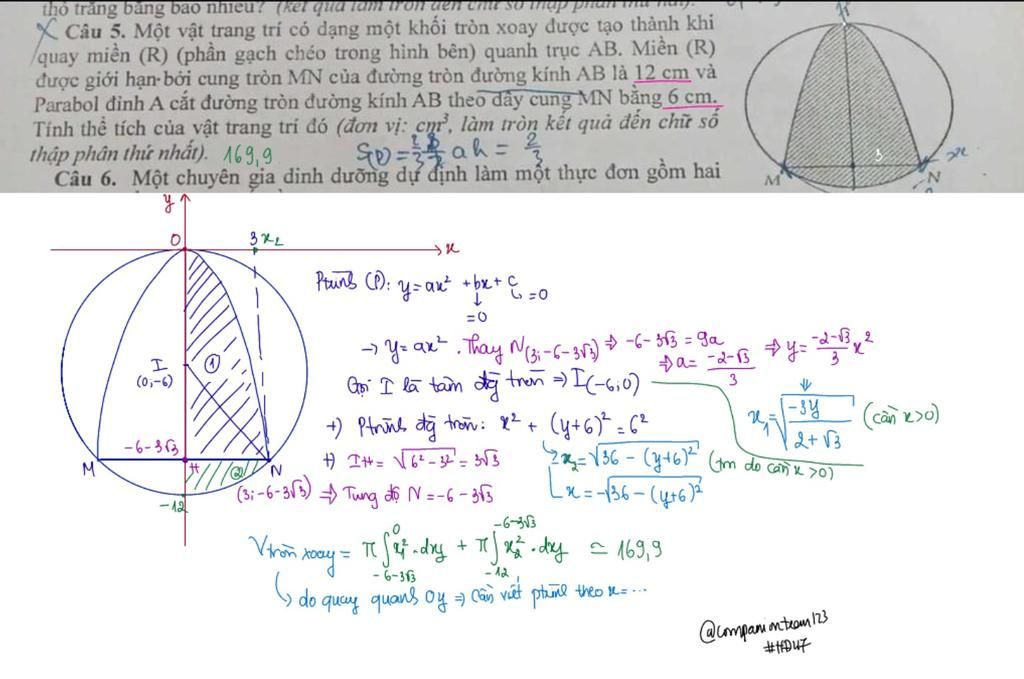 thỏ trắng bằng bao nhiêu? (kết quả làm tròn đến chữ số thập phân thứ hai).
Câu 5. Một vật trang trí có dạng một khối tròn xoay được tạo thành khi
quay miền (R) (phần gạch chéo trong hình bên) quanh trục AB. Miền (R)
được giới hạn bởi cung tròn MN của đường tròn đường kính AB là 12 cm và
Parabol đỉnh A cắt đường tròn đường kính AB theo dây cung MN bằng 6 cm.
Tính thể tích của vật trang trí đó (đơn vị: cm³, làm tròn kết quả đến chữ số
thập phân thứ nhất). 169,9
ah = 2/3
M 3 N x
Câu 6. Một chuyên gia dinh dưỡng dự định làm một thực đơn gồm hai
y
O 3 x₂ x
Ptrình (P): y = ax² + bx + c
=0 =0
→ y = ax². Thay N(3; -6-3√3) ⇒ -6-3√3 = 9a
⇒ a = (-2-√3)/3 ⇒ y = (-2-√3)/3 x²
I ①
(0;-6)
Gọi I là tâm đg tròn ⇒ I(-6;0)
x₁ = √(-3y/(2+√3)) (cần x>0)
+) Ptrình đg tròn: x² + (y+6)² = 6²
-6-3√3
+) IH = √(6²-3²) = 3√3
x₂ = √(36-(y+6)²) (tm do cần x>0)
M H ② N
(3;-6-3√3) ⇒ Tung độ N = -6-3√3
x = -√(36-(y+6)²)
-12
Vtròn xoay = π∫₋₆₋₃√₃⁰ x₁².dxy + π∫₋₁₂⁻⁶⁻³√³ x₂².dxy ≃ 169,9
do quay quanh Oy ⇒ cần viết ptrình theo x=...
@companionteam123
#HD47